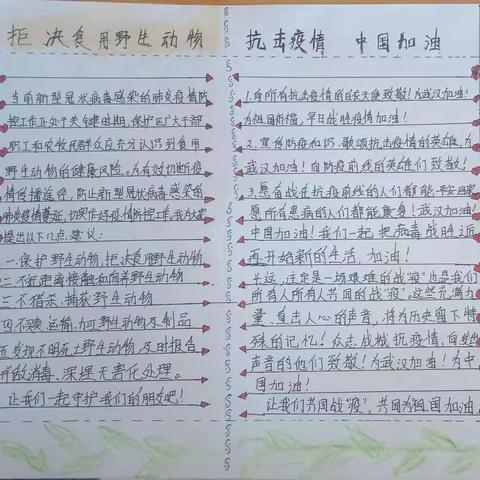 拒决食用野生动物
当前新型冠状病毒感染的肺炎疫情防
控工作正处于关键时期,保护正广大干部
职工和农牧民群众应充分认识到食用
野生动物的健康风险。为有效切断疫
情传播途径,防止新型冠状病毒感染的
肺炎疫情蔓延,切实作好疫情防控工作,我为大家
提出以下几点建议:
一.保护野生动物,拒决食用野生动物
二.不近距离接触和饲养野生动物
三不猎杀、捕获野生动物
四不买运输,加工野生动物及制品
五发现不明死亡野生动物,及时报告
并做消毒、深埋无害化处理。
让我们一起守护我们的朋友吧!
抗击疫情 中国加油
1.向所有抗击疫情的白衣天使致敬!为武汉加油!
为祖国祈福,早日战胜疫情加油!
2.宣传防疫知识、歌颂抗击疫情的英雄,为
武汉加油!向防疫前线的英雄们致敬!
3.愿奋战在抗疫前线的人们都能平安回家
愿所有患病的人们都能康复!武汉加油!
中国加油!我们一起把病毒战胜迎
再开始新的生活,加油!
4.这,注定是一场艰难的战"疫"也是我们
所有人所有人共同的战"疫",这些充满力
量、直击人心的声音,将为历史留下特
殊的记忆!众志成城抗疫情,向发出
声音的他们致敬!为武汉加油!为中
国加油!
让我们共同战"疫",共同为祖国加油